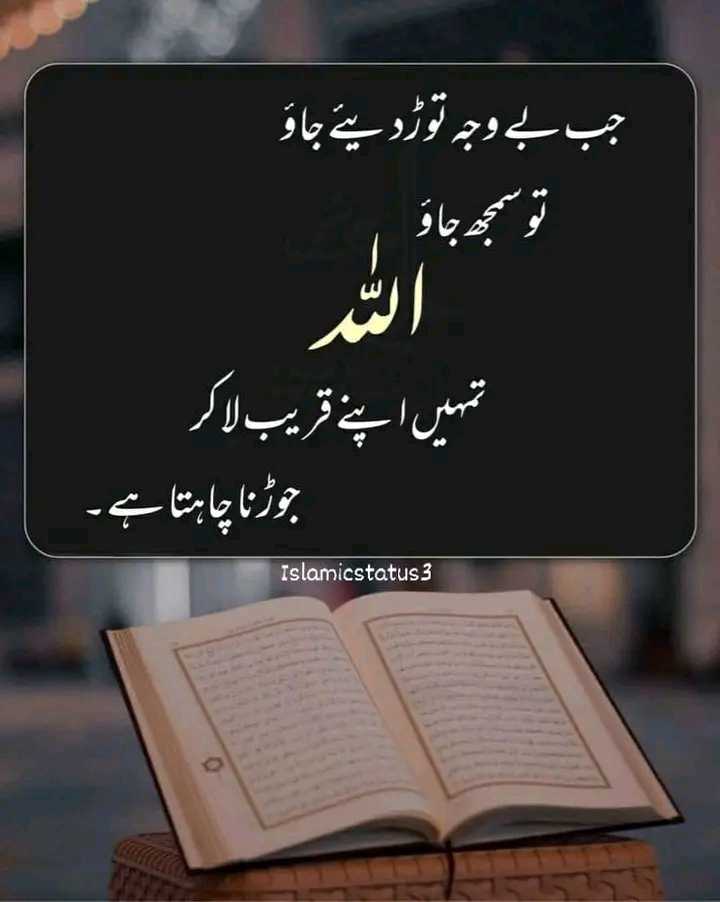 جب بے وجہ توڑ دیئے جاؤ
تو سمجھ جاؤ
اللہ
تمہیں اپنے قریب لا کر
جوڑنا چاہتا ہے۔
Islamicstatus3